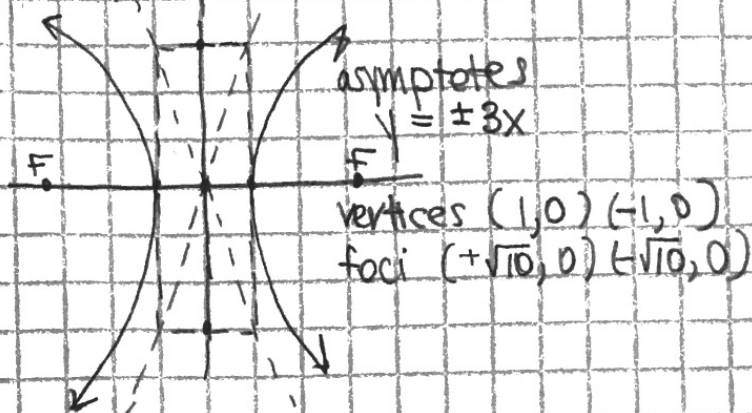 asymptotes
y = ± 3x
F
F
vertices (1,0) (-1,0)
foci (+√10, 0) (-√10, 0)